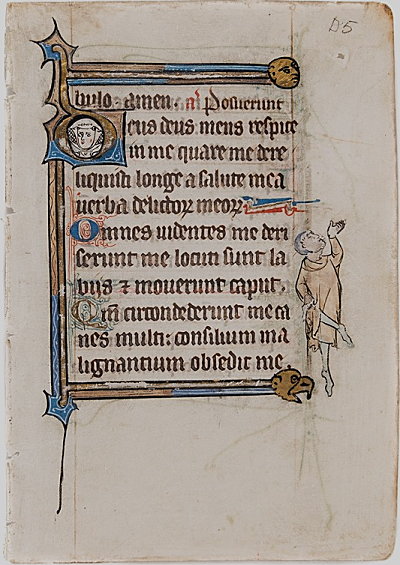 D5
bulo. amen. a᷑ Posuerunt
Deus deus meus respice
in me quare me dere
liquisti longe a salute mea
uerba delictoꝝ meoꝝ
Omnes uidentes me deri
serunt me locuti sunt la
biis ⁊ mouerunt caput.
Qm̄ circondederunt me ca
nes multi: consilium ma
lignantium obsedit me